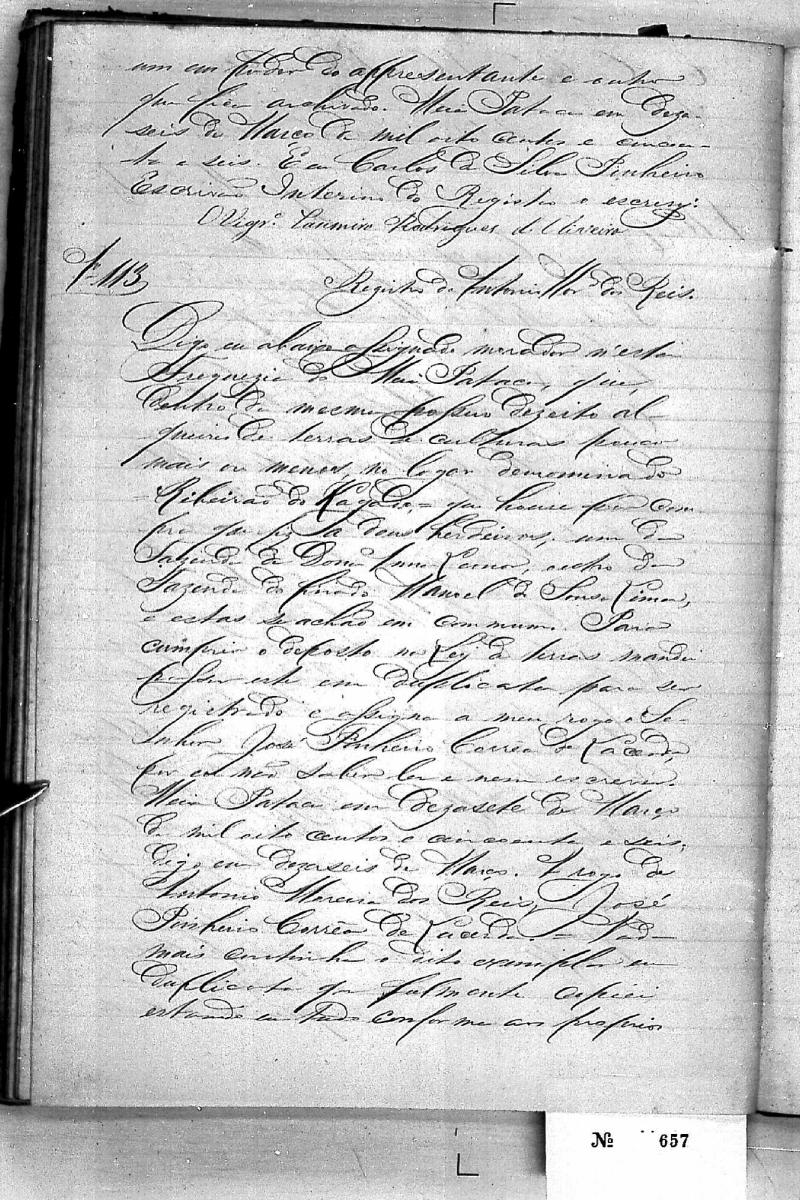 um em poder do appresentante e outro
que fica archivado. Meia Pataca em deza-
seis de Março de mil oito centos e cincoen-
ta e seis. E eu Carlos da Silva Pinheiro
Escrivão Interino do Registro o escrevi.
O Vigr.º Casimiro Rodrigues de Oliveira
Nº 113
Registro de Antonio Mor.ª dos Reis.
Digo eu abaixo assignado morador n'esta
Freguezia de Meia Pataca, que,
dentro da mesma possuo dezoito al-
queires de terras de culturas pouco
mais ou menos, no lugar denominado
=Ribeirão do Kagado= que houve por com
pra que fiz a dous herdeiros, um da
Fazenda de Dona Anna, outro da
Fazenda do finado Manoel de Sousa Lima,
e estas se achão em commum. Para
cumprir o desposto na Ley de terras mandei
passar este em duplicata para ser
registrado e assigna a meu rogo o Se-
nhor José Pinheiro Corrêa de Lacerda,
por eu não saber ler e nem escrever.
Meia Pataca em dezasete de Março
de mil oito centos e cincoenta e seis,
digo em dezaseis de Março. A rogo de
Antonio Moreira dos Reis, José
Pinheiro Corrêa de Lacerda. = Nad-
mais continha o dito exemplar em
duplicata que fielmente copiei
estando em tudo conforme aos proprios
Nº 657